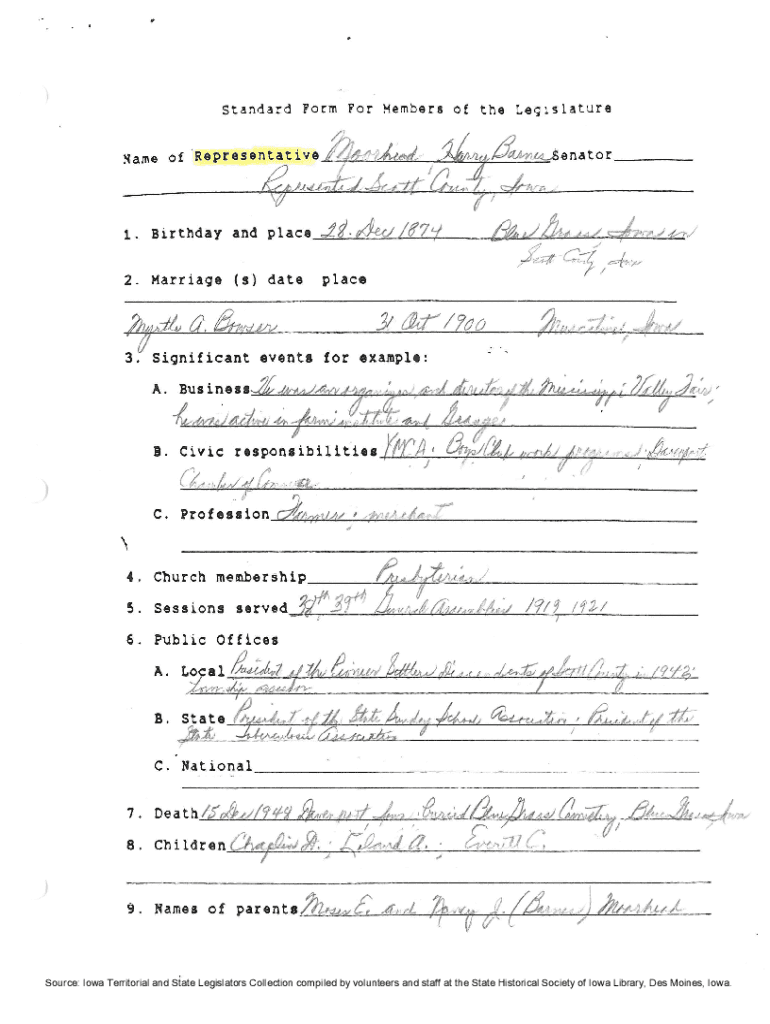 Standard Form For Members of the Legislature
Name of Representative Moorhead, Harry Barnes Senator
Represented Scott County, Iowa
1. Birthday and place 28 Dec 1874 Blue Grass, Iowa in
Scott County, Iowa
2. Marriage (s) date place
Myrtle A. Bowser 31 Oct 1900 Muscatine, Iowa
3. Significant events for example:
A. Business He was an organizer and director of the Mississippi Valley Fair;
he was active in farm institute and Grange.
B. Civic responsibilities YMCA; Boys Club work programs; Davenport
Chamber of Commerce
C. Profession Farmer; merchant
4. Church membership Presbyterian
5. Sessions served 38th, 39th General Assemblies 1919, 1921
6. Public Offices
A. Local President of the Pioneer Settlers Descendents of Scott County in 1942;
township assessor
B. State President of the State Sunday School Association; President of the
State Tuberculosis Association
C. National
7. Death 15 Dec 1948 Davenport, Iowa; buried Blue Grass Cemetery, Blue Grass, Iowa
8. Children Chaplin D.; Leland A.; Everett C.
9. Names of parents Moses E. and Nancy J. (Barnes) Moorhead
Source: Iowa Territorial and State Legislators Collection compiled by volunteers and staff at the State Historical Society of Iowa Library, Des Moines, Iowa.